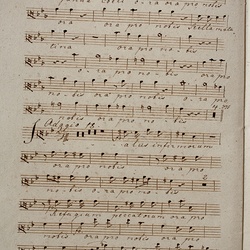 ora pro nobis Stella matu
tina ora pro nobis
ora pro
nobis ora pro nobis
ora pro nobis
Adagio 18 Salus infirmorum
ora pro
nobis ora pro nobis
Refugium peccatorum ora pro
nobis ora pro nobis ora pro